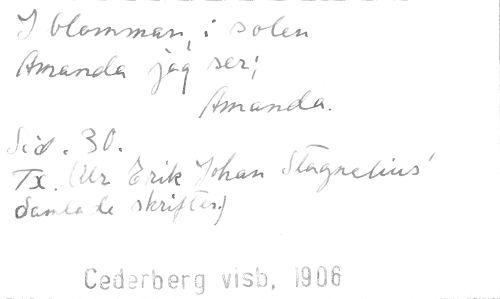 I blomman, i solen
Amanda jag ser;
Amanda.
Sid. 30.
Tx. (Ur Erik Johan Stagnelius'
Samlade skrifter.)
Cederberg visb, 1906